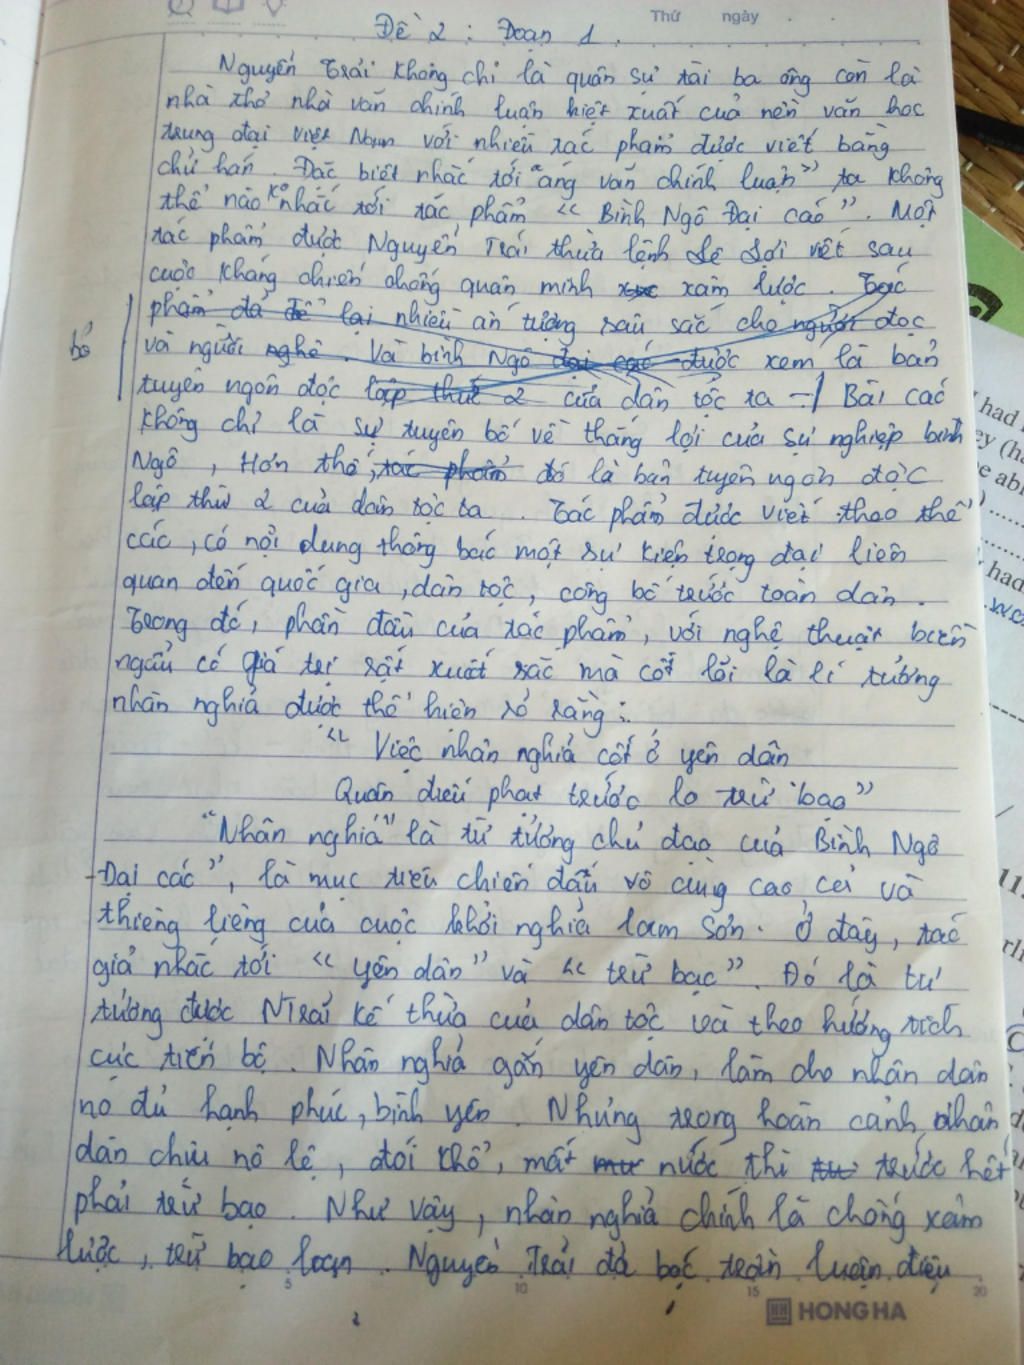 Thứ ngày
Đề 2 : Đoạn 1.
Nguyễn Trãi không chỉ là quân sự tài ba ông còn là
nhà thơ nhà văn chính luận kiệt xuất của nền văn học
trung đại việt Nam với nhiều tác phẩm được viết bằng
chữ hán. Đặc biết nhắc tới "áng văn chính luận" ta không
thể nào ko nhắc tới tác phẩm "Bình Ngô Đại cáo". Một
tác phẩm được Nguyễn Trãi thừa lệnh Lê Lợi viết sau
cuộc kháng chiến chống quân minh xâm lược. Tác
phẩm đã để lại nhiều ấn tượng sâu sắc cho người đọc
bỏ và người nghe. Và bình Ngô đại cáo được xem là bản
tuyên ngôn độc lập thứ 2 của dân tộc ta - Bài cáo
không chỉ là sự tuyên bố về thắng lợi của sự nghiệp bình
Ngô, Hơn thế, tác phẩm đó là bản tuyên ngôn độc
lập thứ 2 của dân tộc ta. Tác phẩm được viết theo thể
cáo, có nội dung thông báo một sự kiện trọng đại liên
quan đến quốc gia, dân tộc, công bố trước toàn dân.
Trong đó, phần đầu của tác phẩm, với nghệ thuật biền
ngẫu có giá trị rất xuất sắc mà cốt lõi là lí tưởng
nhân nghĩa được thể hiện rõ ràng:
"Việc nhân nghĩa cốt ở yên dân
Quân điếu phạt trước lo trừ bạo"
"Nhân nghĩa" là từ tưởng chủ đạo của Bình Ngô
Đại cáo", là mục tiêu chiến đấu vô cùng cao cả và
thiêng liêng của cuộc khởi nghĩa lam Sơn. Ở đây, tác
giả nhắc tới "yên dân" và "trừ bạo". Đó là tư
tưởng được NTrãi kế thừa của dân tộc và theo hướng tích
cực tiến bộ. Nhân nghĩa gắn yên dân, làm cho nhân dân
no đủ hạnh phúc, bình yên. Nhưng trong hoàn cảnh nhân
dân chịu nô lệ, đói khổ, mất nước thì trước hết
phải trừ bạo. Như vậy, nhân nghĩa chính là chống xâm
lược, trừ bạo loạn. Nguyễn Trãi đã bóc trần luận điệu
5 10 15 20
HONG HA